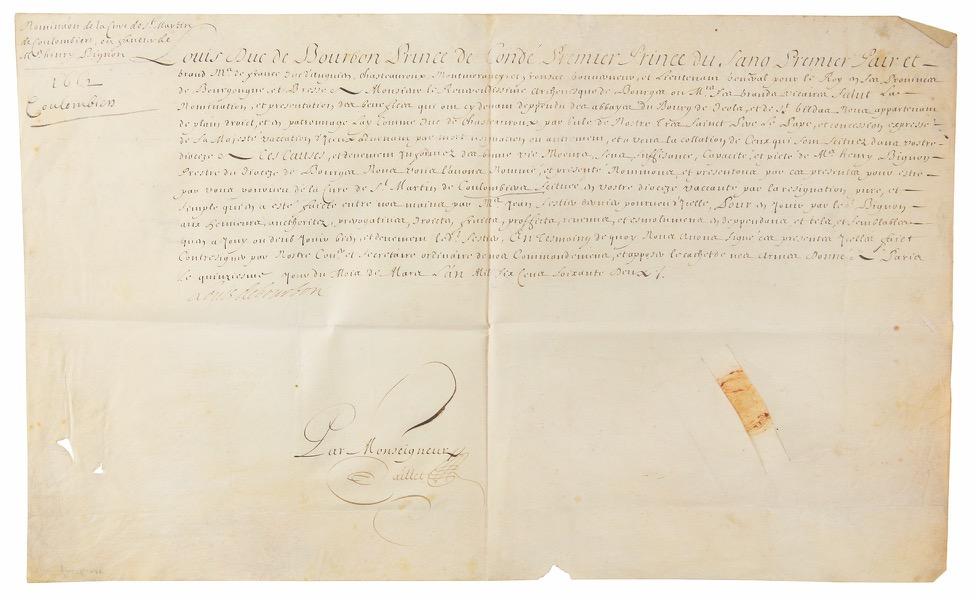 Nomination de la Cure de St. Martin
de Coulombiers, en faveur de
Mre henry Bignon
1662
Coulombiers
Louis Duc de Bourbon Prince de Condé Premier Prince du Sang Premier Pair et
Grand Mre de france Duc d'anguien, Chasteauroux Montmorency et fronsac Gouverneur, et Lieutenant General pour le Roy en ses Provinces
de Bourgongne et Bresse A Monsieur le Reverendissime Archevesque de Bourges ou Mrs ses Grands vicaires Salut La
Nomination, et presentation des benefices qui ont cy devant deppendu des abbayes du Bourg de Deols, et de St. Gildas Nous appartenant
de plain droict, et en patronnage Lay comme Duc de Chasteauroux par bulle de Nostre Tres Sainct Pere le Pape, et concession expresse
de Sa Majesté vaccation d'Iceux advenant par mort resignation ou autrement, et a vous la collation de Ceux qui sont scituez dans vostre
dioceze A Ces Causes, et devement Informez des bonne vie Moeurs, sens, suffisance, Capacité, et pieté de Mre henry Bignon
Prestre du dioceze de Bourges Nous vous l'avons Nommé, et presenté Nommons, et presentons par ces presentes pour estre
par vous pourveu de la Cure de St. Martin de Coulombiers Scituée en vostre dioceze vaccante par la resignation pure, et
simple qui en a esté faicte entre nos mains par Mre Jean Sestias dernier pourveu d'Icelle, Pour en Jouir par led. Bignon
aux honneurs, authoritez, prerogatives, droicts, fruicts, profficts, revenus, et esmolumens en deppendans et tels, et semblables
qu'en a Jouy ou deub Jouir bien, et devement led. Sestias, En tesmoing de quoy Nous avons Signé ces presentes Icelles faict
Contresigner par Nostre Coner. et Secretaire ordinaire de nos Commandemens, et apposer le cachet de nos Armes Donné A Paris
le quinziesme Jour du Mois de Mars L'an Mil Six Cens Soixante Deux /.
Louis de bourbon
Par Monseigneur
Caillet